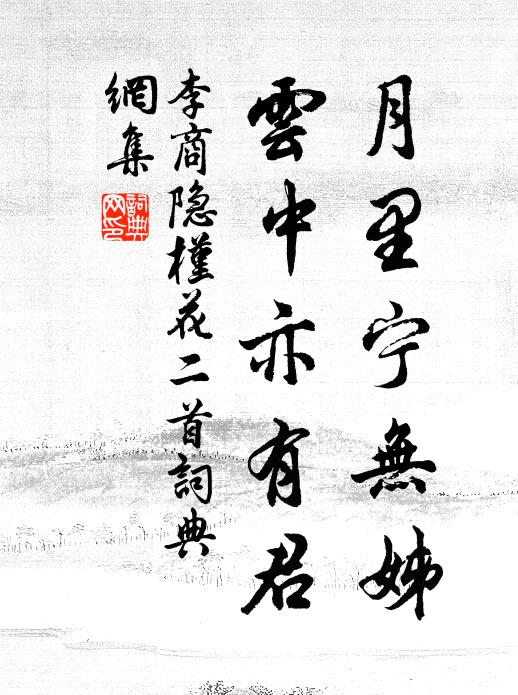 月里宁無姊
雲中亦有君
李商隐槿花二首詞典
網集
詞典
网印